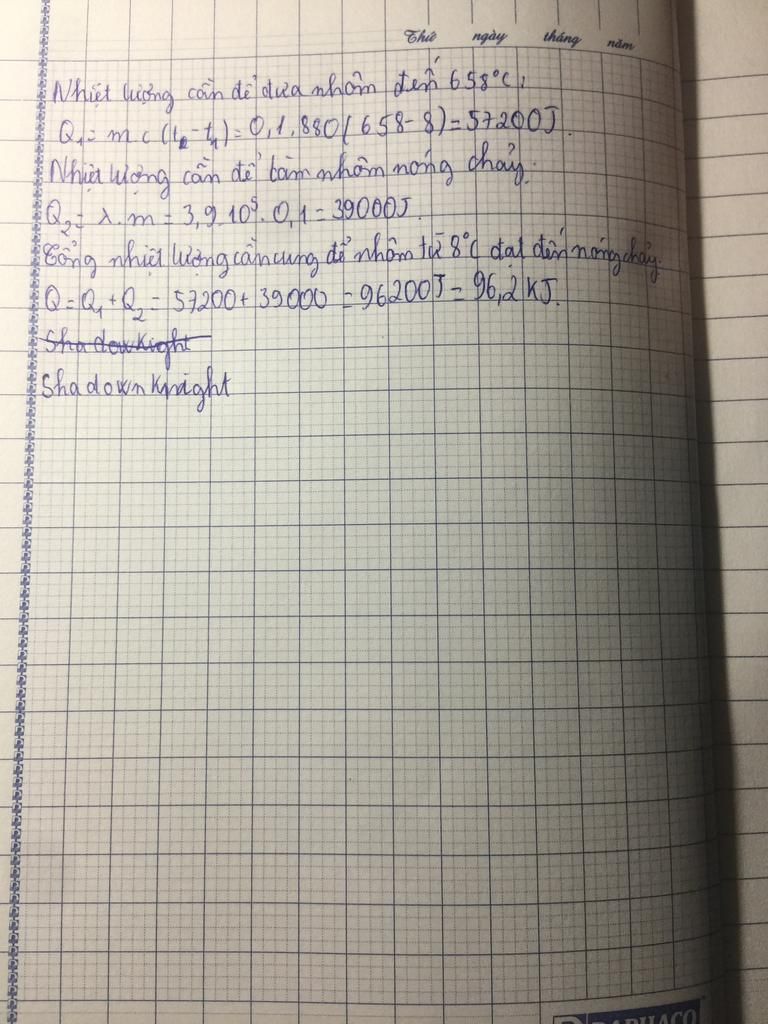 Thứ ngày tháng năm
Nhiệt lượng cần để đưa nhôm đến 658°C:
Q₁ = m c (t₂ - t₁) = 0,1.880(658-8) = 57200J.
Nhiệt lượng cần để làm nhôm nóng chảy.
Q₂ = λ.m = 3,9.10⁵.0,1 = 39000J.
Tổng nhiệt lượng cần cung để nhôm từ 8°C đạt đến nóng chảy.
Q = Q₁ + Q₂ = 57200 + 39000 = 96200J = 96,2 KJ.
ShadowKight
ShadownKnight